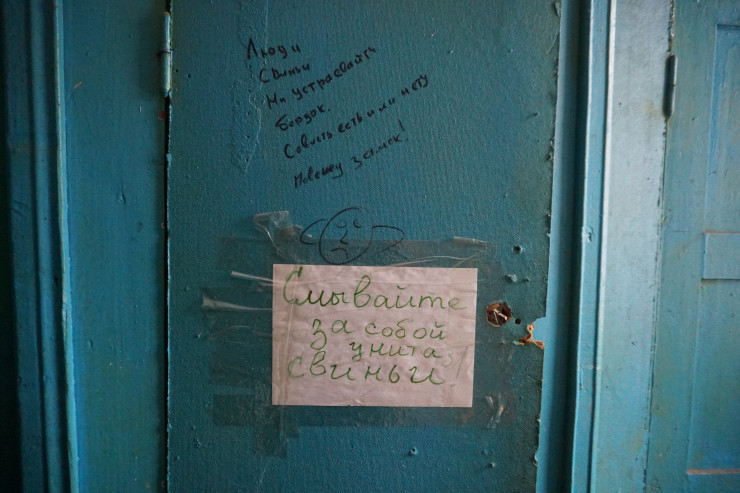 Люди
Свиньи
Ни устраевайти
бордок.
Совисть есть или нету
Повешу замок!
Смывайте
за собой
унитаз
свиньи!